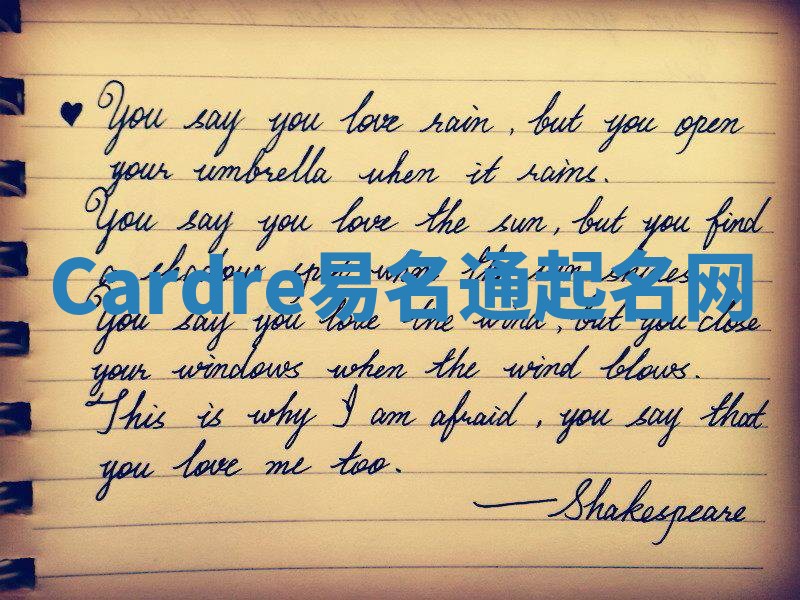 ♥ You say you love rain, but you open
your umbrella when it rains.
You say you love the sun, but you find
a shadow spot when the sun shines.
Cardre易名通起名网
You say you love the wind, but you close
your windows when the wind blows.
This is why I am afraid, you say that
you love me too.
—Shakespeare